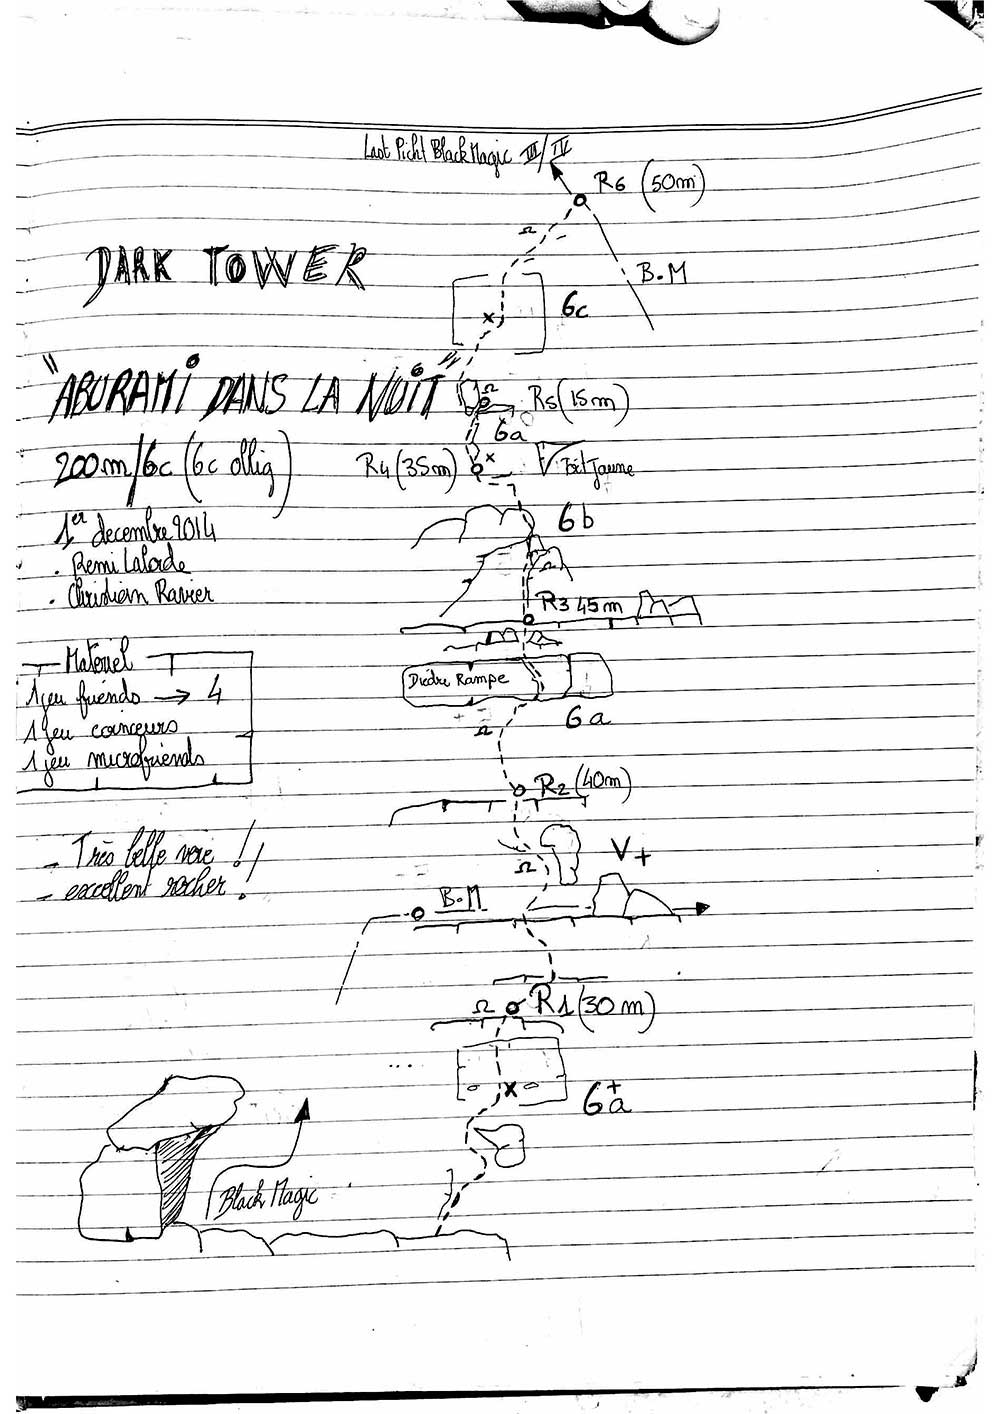 Last Picht Black Magic III/IV
R6 (50m)
DARK TOWER
B.M
6c
"ABURAMi DANS LA NUiT"
R5 (15m)
6a
200m/6c (6c oblig)
R4 (35m)
Toit Jaune
6b
1er decembre 2014
. Remi Laborde
. Christian Ravier
R3 45m
Matériel
1 jeu friends → 4
1 jeu coinceurs
1 jeu microfriends
Diedre Rampe
6a
R2 (40m)
- Très belle voie !
- excellent rocher !
V+
B.M
R1 (30m)
6a+
Black Magic